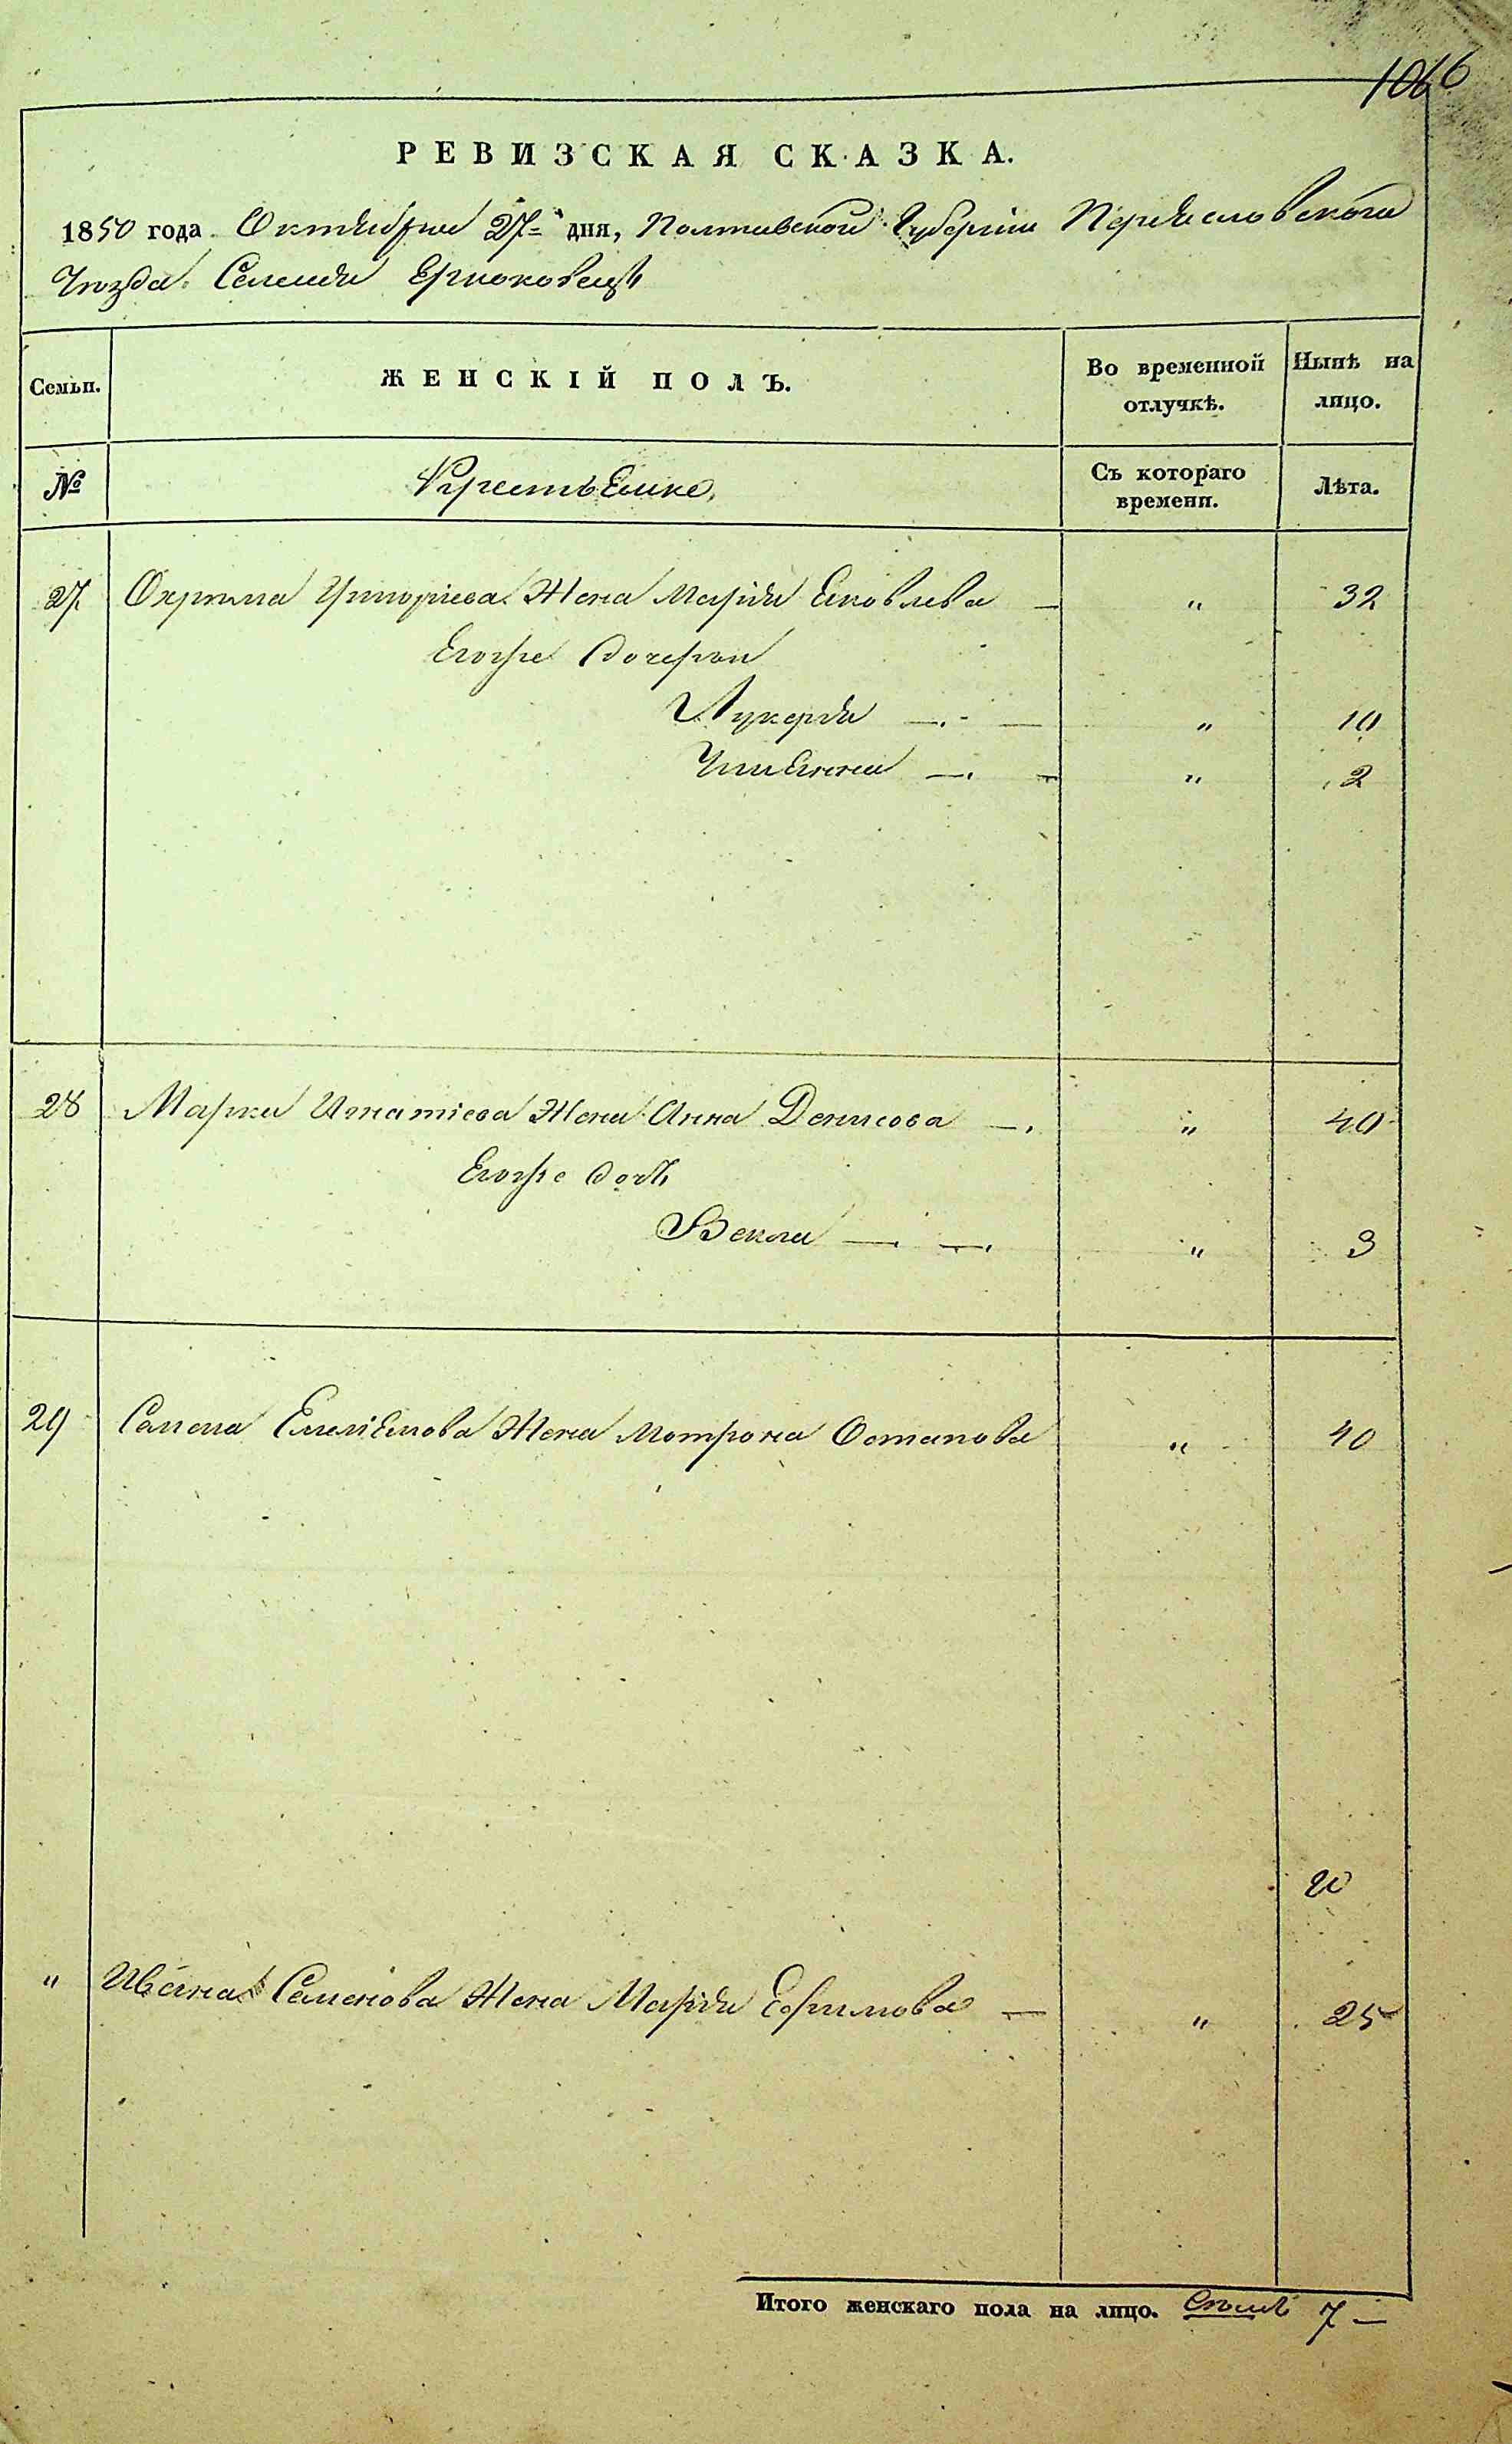 1066
РЕВИЗСКАЯ СКАЗКА.
1850 года Октября 27 дня, Полтавской Губерніи Переясловского
Уѣзда Селенія Ерковецъ
Семьи. ЖЕНСКІЙ ПОЛЪ. Во временной отлучкѣ. Нынѣ на лицо.
№ Съ котораго времени. Лѣта.
27 Охрима Григоріева Жена Марія Яковлева — " 32
Егоже Дочери
Лукерія — " 10
Ульяна — " 2
28 Марка Игнатіева Жена Анна Денисова — " 40
Егоже дочь
Векла — — " 3
29 Семена Емельянова Жена Мотрона Остапова " 40
20
" Ивана Семенова Жена Марія Ефимова — " 25
Итого женскаго пола на лицо. 7 —